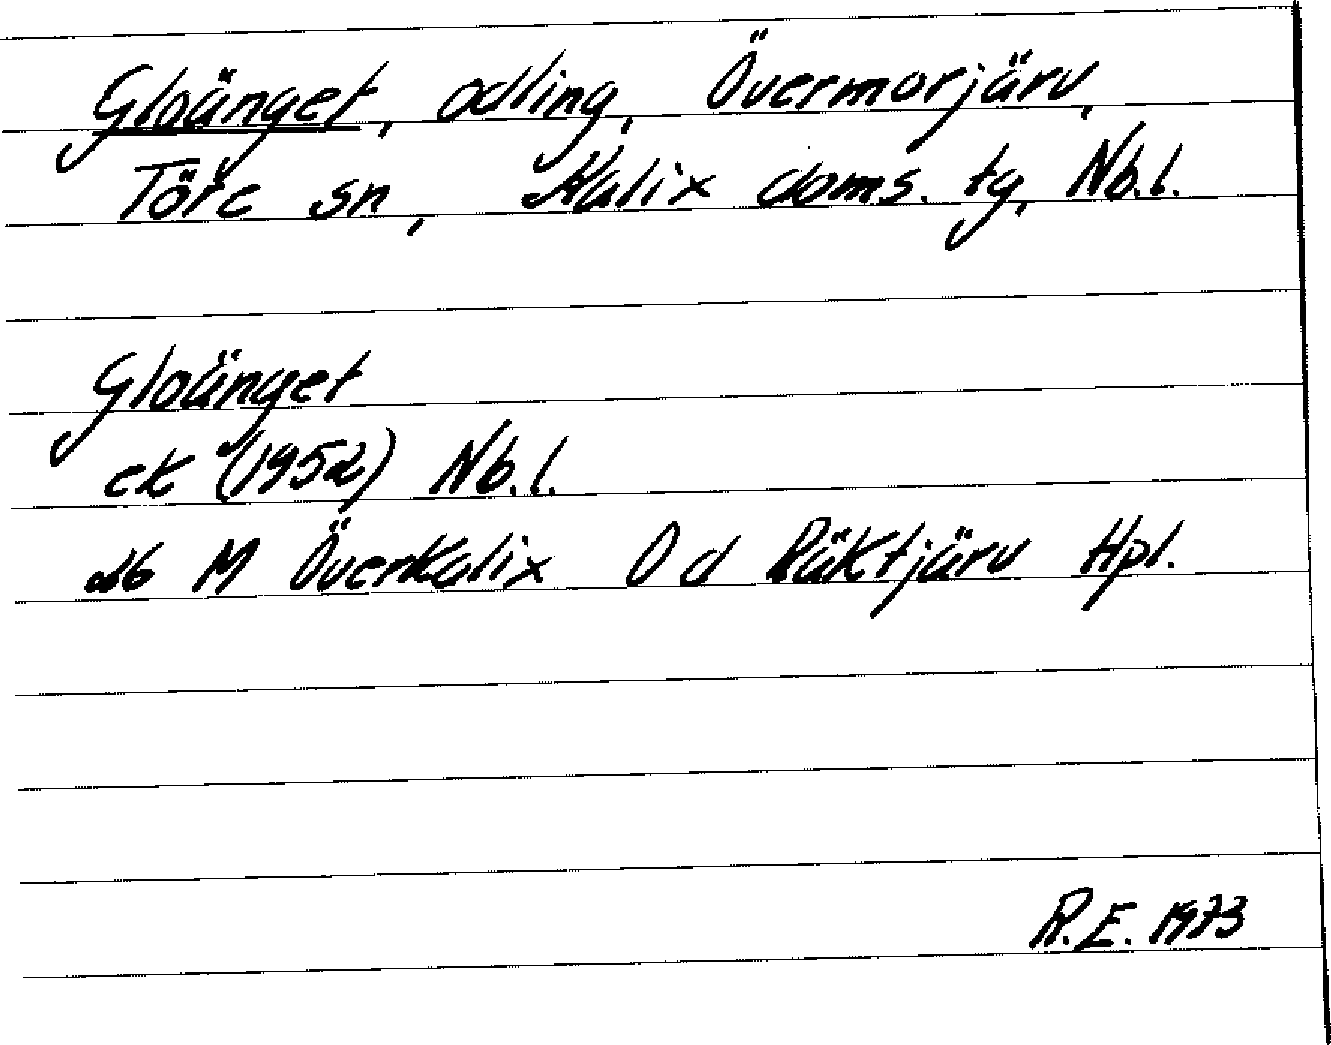 Gloänget, odling, Övermorjärv,
Töre sn, Kalix doms. tg, Nb.l.
Gloänget
ek (1952) Nb.l.
26 M Överkalix 0 d Räktjärv Hpl.
R.E. 1973